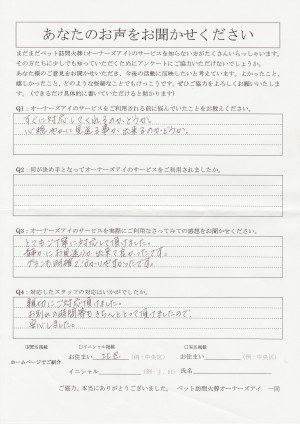 あなたのお声をお聞かせください
まだまだペット訪問火葬(オーナーズアイ)のサービスを知らない方がたくさんいらっしゃいます。
その方たちに少しでも知っていただくためにアンケートにご協力いただけないでしょうか。
あなた様のご意見をお聞かせいただき、今後の活動に反映したいと考えています。よかったこと、
嬉しかったこと、どのような些細なことでもけっこうです。ぜひご協力をよろしくお願いいたしま
す。(できるだけ具体的に書いていただけると助かります)
Q1:オーナーズアイのサービスをご利用される前に悩んでいたことをお教えください。
すぐに対応してくれるのかどうか。
心穏やかに見送る事が出来るのかどうか。
Q2:何が決め手となってオーナーズアイのサービスをご利用されましたか。
Q3:オーナーズアイのサービスを実際にご利用なさってみての感想をお聞かせください。
とてもご丁寧に対応して頂けました。
静かにお見送りが出来て良かったです。
プランも明確で分かりやすかったです。
Q4:対応したスタッフの対応はいかがでしたか。
親切にご対応頂けました。
お別れの時間等もきちんととって頂けましたので、
安心しました。
ホームページでご紹介
匿名掲載
□イニシャル掲載
□実名掲載
お住まい
(例:中央区)
お住まい
(例:中央区)
イニシャル
(例:J.H)
氏名
ご協力、本当にありがとうございました。 ペット訪問火葬オーナーズアイ 一同